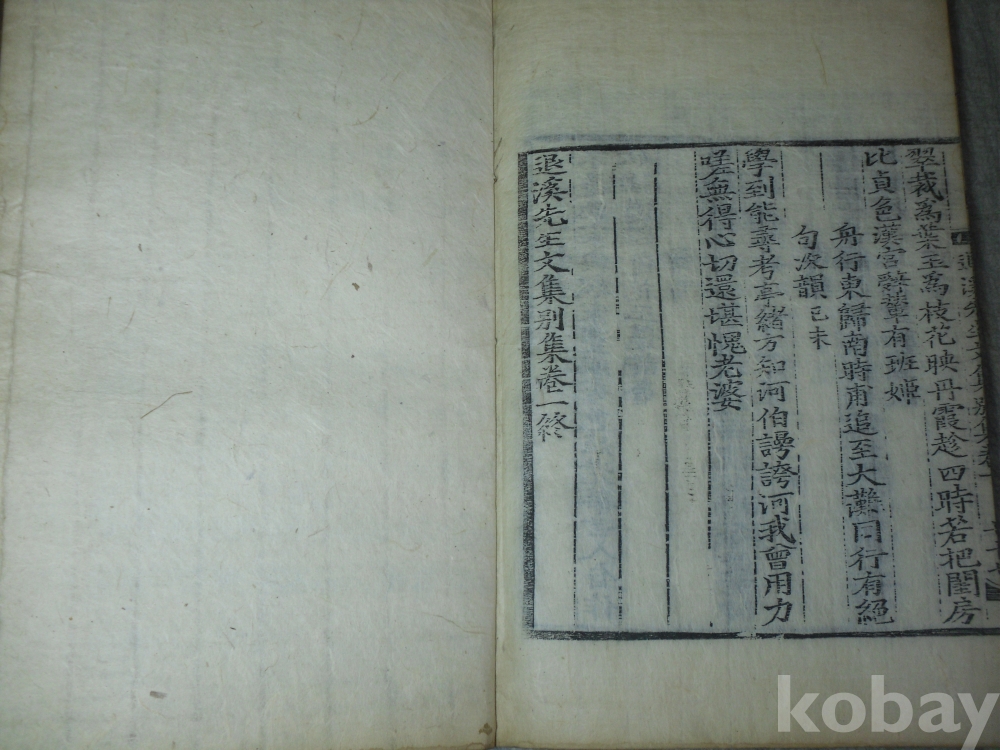 翠裁爲葉玉爲枝花映丹霞趁四時若把閨房
比貞色漢宮辭輦有班姬
舟行東歸南時甫追至大灘同行有絕
句次韻己未
學到能尋考亭緒方知河伯謾誇河我曾用力
嗟無得心切還堪愧老婆
退溪先生文集別集卷一終
kobay